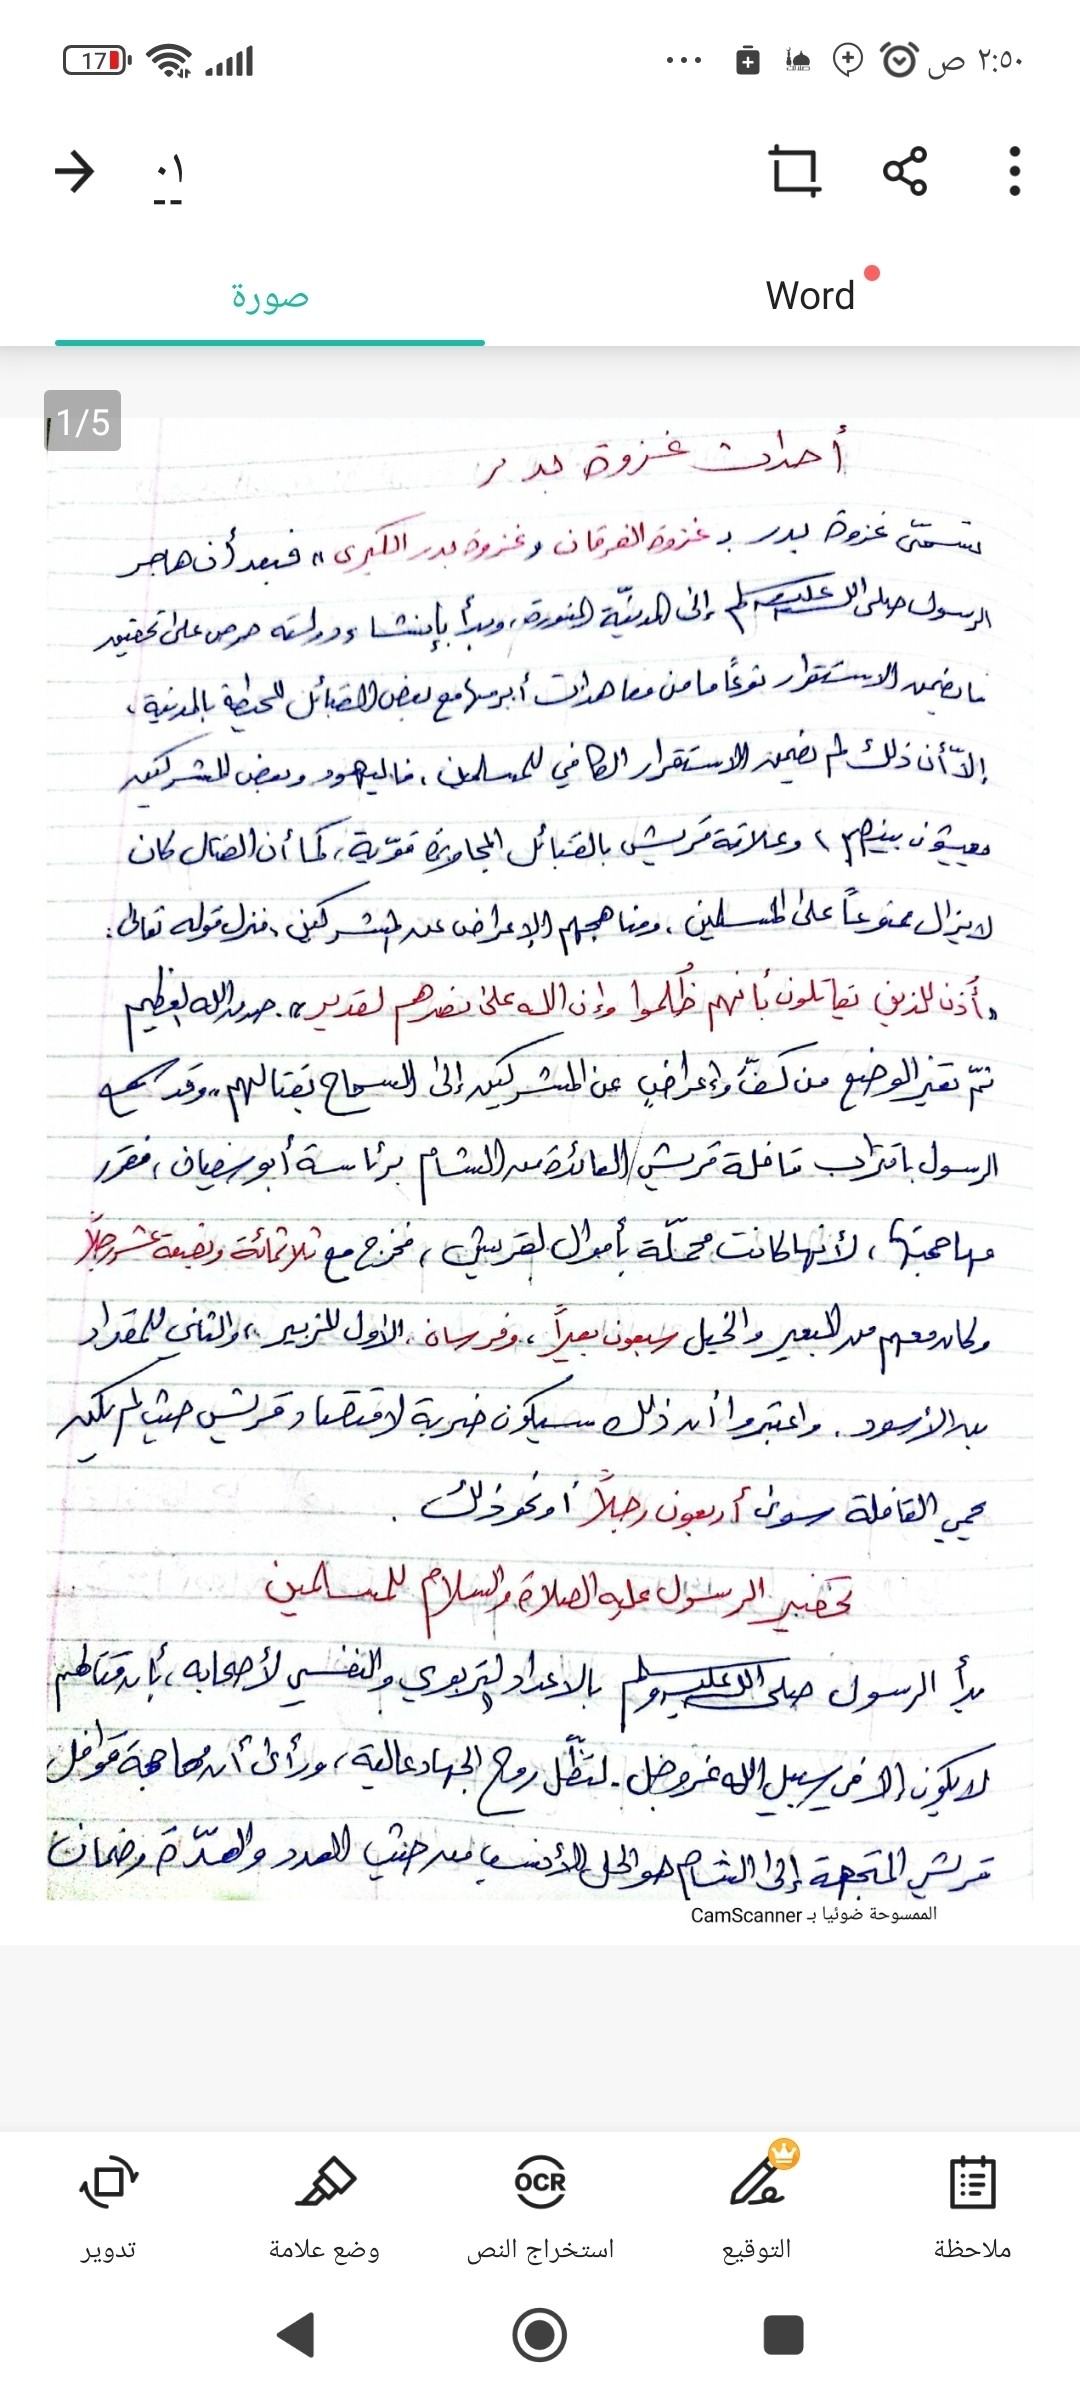 17
٢:٥٠ ص
٠١
صورة
Word
1/5
أحداث غزوة بدر
تسمّى غزوة بدر بـ غزوة الفرقان وغزوة بدر الكبرى " فبعد أن هاجر
الرسول صلى الله عليه وسلم إلى المدينة المنورة، وبدأ بإنشاء دولته حرص على تحقيق
ما يضمن الاستقرار نوعًا ما من معاهدات أبرمها مع بعض القبائل المحيطة بالمدينة،
إلاّ أن ذلك لم يضمن الاستقرار الكافي للمسلمين، فاليهود وبعض المشركين
يعيشون بينهم، وعلاقة قريش بالقبائل المجاورة قوّية، كما أن القتال كان
لا يزال ممنوعاً على المسلين، ومناهجهم الإعراض عن المشركين، فنزل قوله تعالى:
"أُذن للذين يقاتلون بأنهم ظُلموا وإن الله على نصرهم لقدير". صدق الله العظيم
تمّ تغير الوضع من كفٍّ وإعراضٍ عن المشركين إلى السماح بقتالهم، وقد سمع
الرسول باقتراب قافلة قريش العائدة من الشام برئاسة أبو سفيان، فقرر
مهاجمتها، لأنها كانت محمّلة بأموال لقريش، فخرج مع ثلاثمائة وبضعة عشر رجلًا
وكان معهم من البعير والخيل سبعون بعيراً، وفرسان، الأول للزبير، والثاني للمقداد
بن الأسود. واعتبروا أن ذلك سيكون ضربة لاقتصاد قريش حيث لم يكن
يحمي القافلة سوى أربعون رجلاً أو نحو ذلك.
تحضير الرسول عليه الصلاة والسلام للمسلمين
بدأ الرسول صلى الله عليه وسلم بالاعداد التربوي والنفسي لأصحابه، بأن قتالهم
لا يكون إلا في سبيل الله عز وجل. لتظّل روح الجهاد عالية، ورأى أن مهاجمة قوافل
قريش المتجهة إلى الشام هو الحل الأنسب من حيث العدد والعدّة وضمان
الممسوحة ضوئيا بـ CamScanner
تدوير
وضع علامة
OCR
استخراج النص
التوقيع
ملاحظة